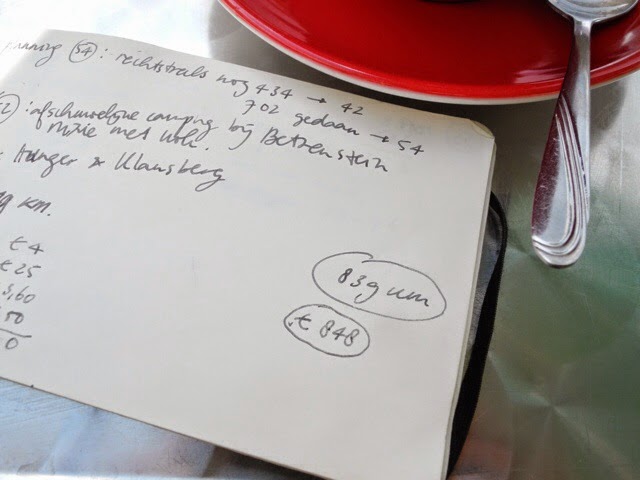 planning 54 : rechtstreeks nog 434 → 42
702 gedaan → 54
52) : afschuwelijke camping bij Betzenstein
ruzie met
Hunger & Klausberg
ng km.
€ 4
€ 25
5,60
,50
0
839 km
€ 848